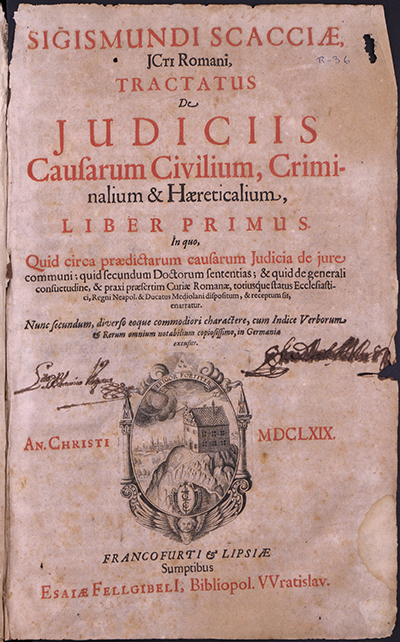 SIGISMUNDI SCACCIÆ,
R-36
JCTI Romani,
TRACTATUS
De
JUDICIIS
Cauſarum Civilium, Crimi-
nalium & Hæreticalium,
LIBER PRIMUS.
In quo,
Quid circa prædictarum cauſarum Judicia de jure
communi: quid ſecundum Doctorum ſententias; & quid de generali
conſuetudine, & praxi præſertim Curiæ Romanæ, totiusque ſtatus Eccleſiaſti-
ci, Regni Neapol. & Ducatus Mediolani diſpoſitum, & receptum ſit,
enarratur.
Nunc ſecundum, diverſo eoque commodiori charactere, cum Indice Verborum
& Rerum omnium notabilium copioſiſſimo, in Germania
excuſus.
AN. CHRISTI
MDCLXIX.
FRANCOFURTI & LIPSIÆ
Sumptibus
ESAIÆ FELLGIBELI, Bibliopol. VVratislav.